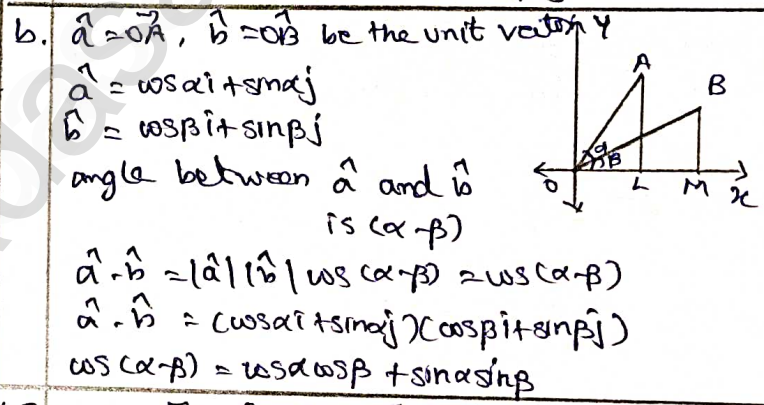 b. â = OA⃗, b̂ = OB⃗ be the unit vector
â = cosαi + sinαj
b̂ = cosβî + sinβj
angle between â and b̂
is (α-β)
â . b̂ = |â| |b̂| cos (α-β) = cos (α-β)
â . b̂ = (cosαî + sinαj)(cosβi + sinβĵ)
cos (α-β) = cosαcosβ + sinαsinβ
Y
A
B
α
β
O
L
M
x